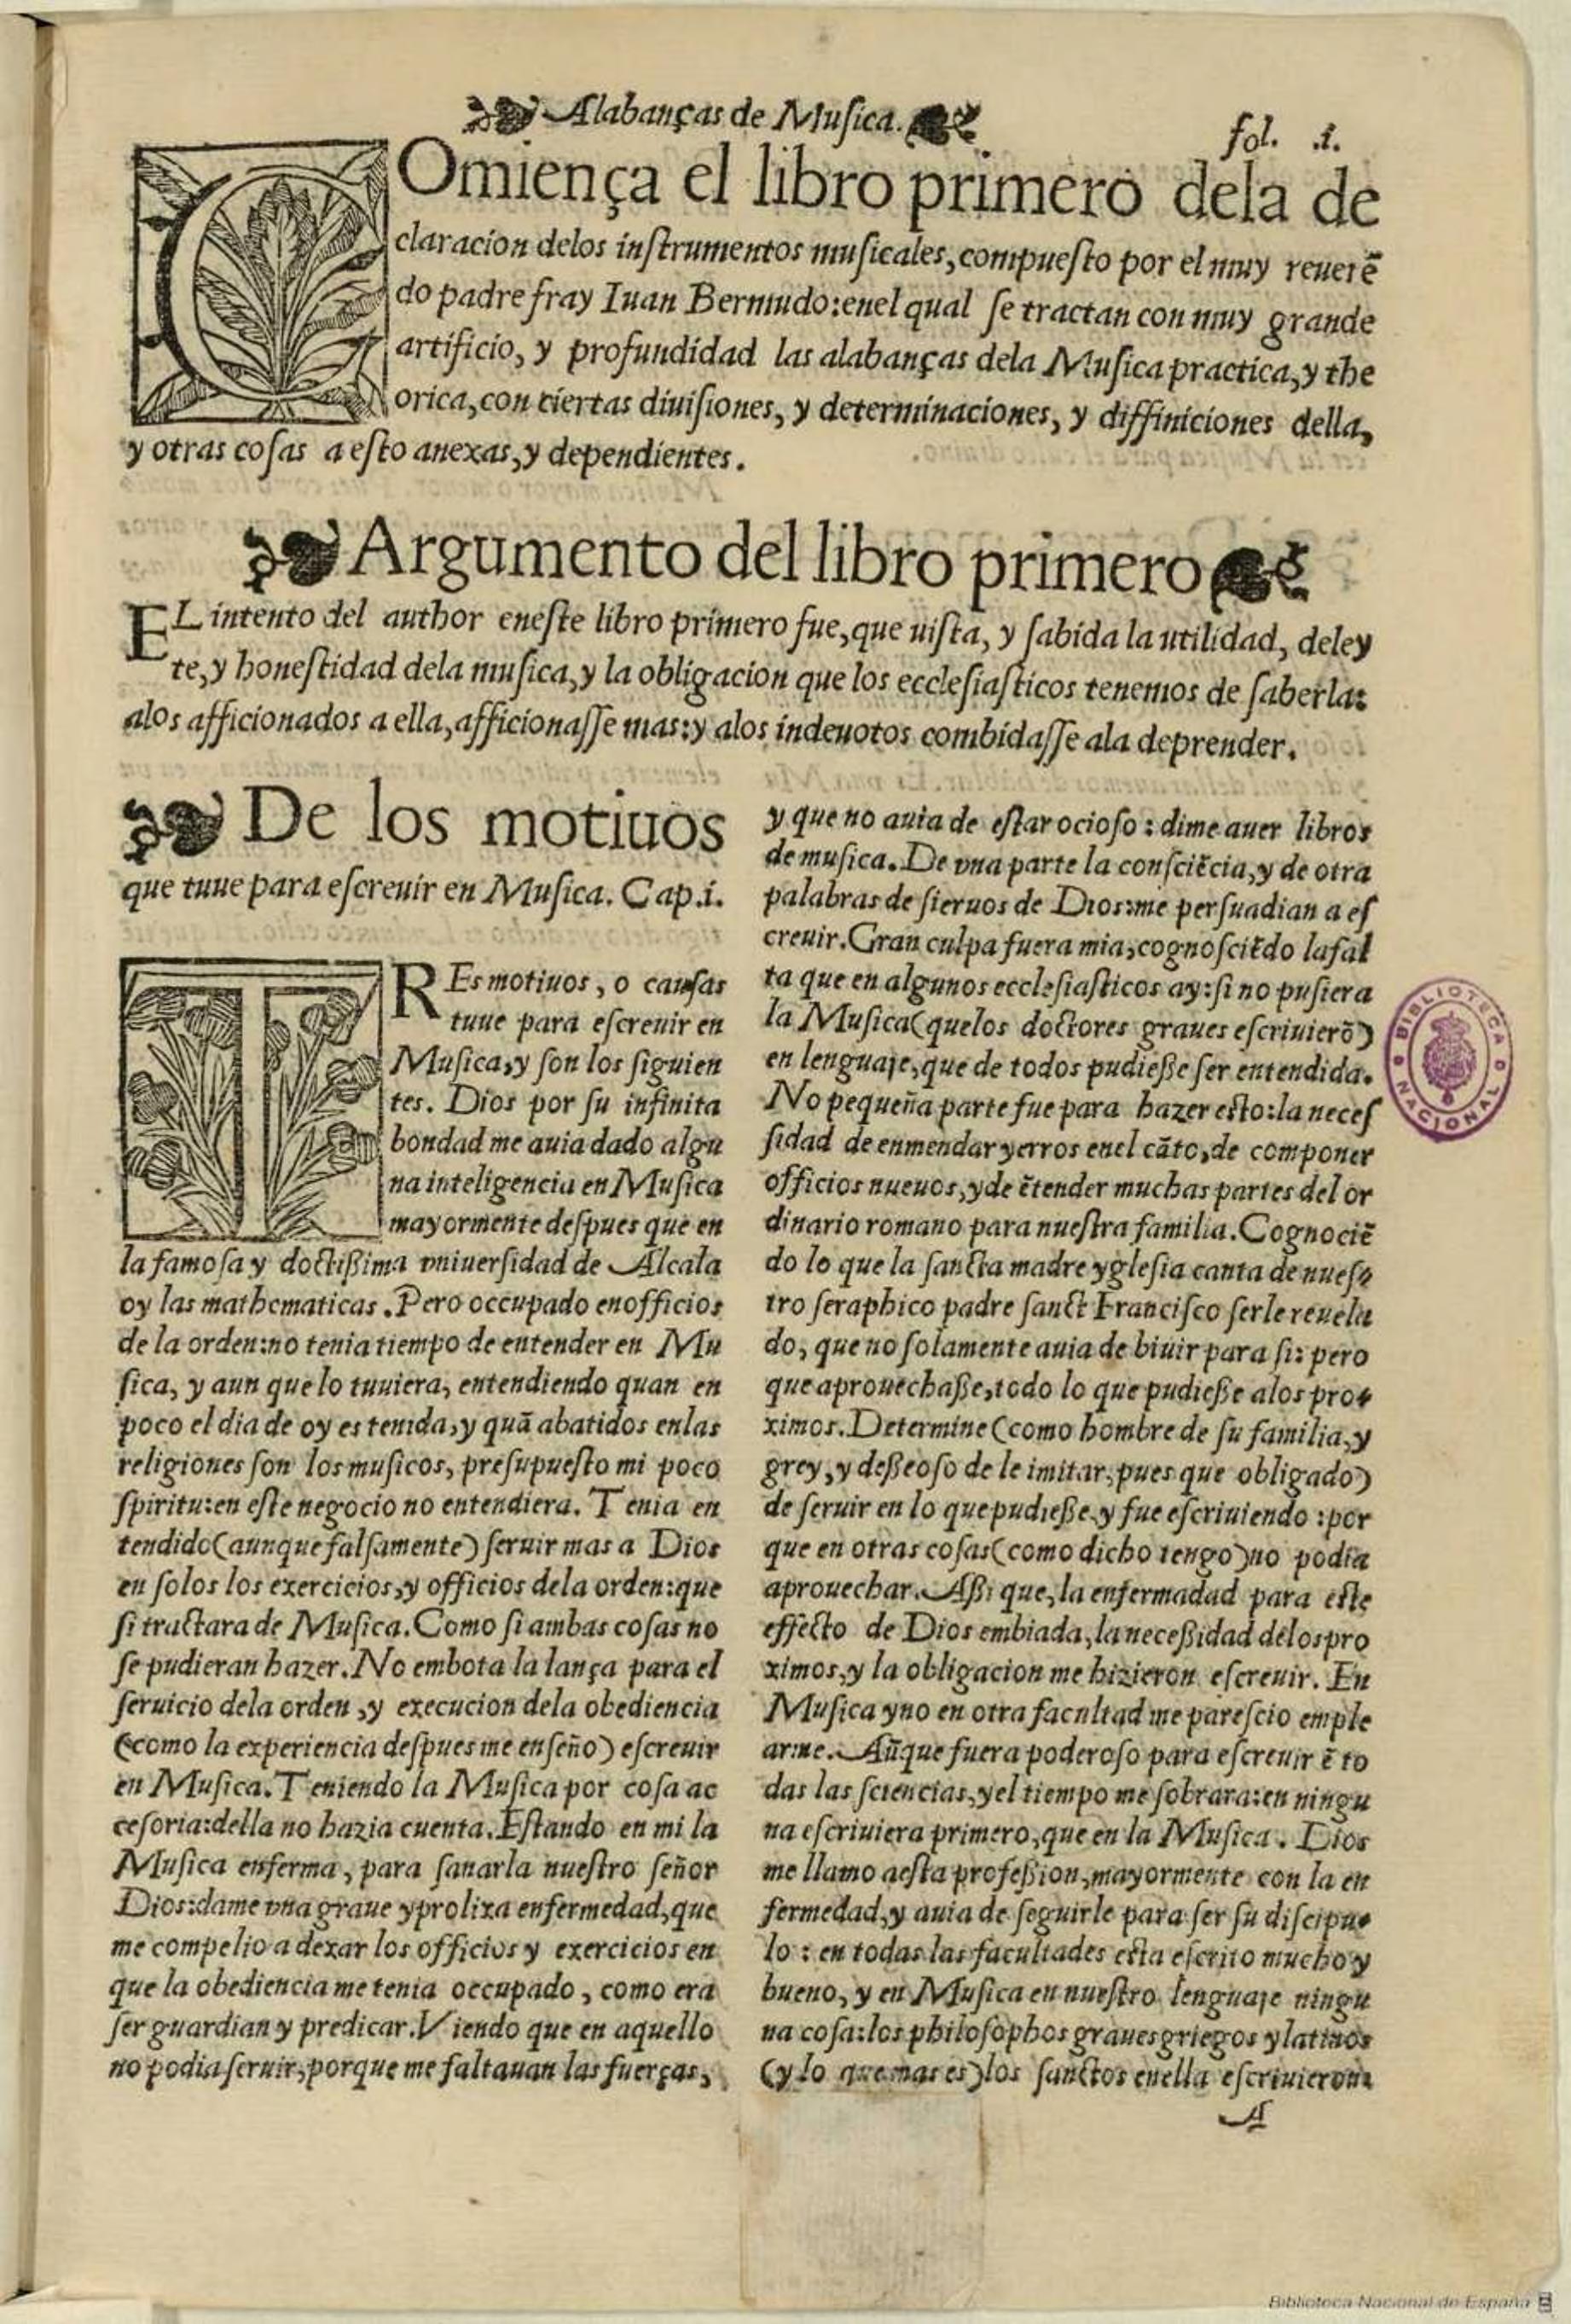 Alabanças de Musica.
fol. .i.
COmiença el libro primero dela de
claracion delos instrumentos musicales, compuesto por el muy reuerẽ
do padre fray Iuan Bermudo: enel qual se tractan con muy grande
artificio, y profundidad las alabanças dela Musica practica, y the
orica, con ciertas diuisiones, y determinaciones, y diffiniciones della,
y otras cosas a esto anexas, y dependientes.
Argumento del libro primero
EL intento del author eneste libro primero fue, que uista, y sabida la utilidad, deley
te, y honestidad dela musica, y la obligacion que los ecclesiasticos tenemos de saberla:
alos afficionados a ella, afficionasse mas: y alos indeuotos combidasse ala deprender.
De los motiuos
que tuue para escreuir en Musica. Cap.i.
TREs motiuos, o causas
tuue para escreuir en
Musica, y son los siguien
tes. Dios por su infinita
bondad me auia dado algu
na inteligencia en Musica
mayormente despues que en
la famosa y doctißima vniuersidad de Alcala
oy las mathematicas. Pero occupado en officios
de la orden: no tenia tiempo de entender en Mu
sica, y aun que lo tuuiera, entendiendo quan en
poco el dia de oy es tenida, y quã abatidos enlas
religiones son los musicos, presupuesto mi poco
spiritu: en este negocio no entendiera. Tenia en
tendido (aunque falsamente) seruir mas a Dios
en solos los exercicios, y officios dela orden: que
si tractara de Musica. Como si ambas cosas no
se pudieran hazer. No embota la lança para el
seruicio dela orden, y execucion dela obediencia
(como la experiencia despues me enseño) escreuir
en Musica. Teniendo la Musica por cosa ac
cesoria: della no hazia cuenta. Estando en mi la
Musica enferma, para sanarla nuestro señor
Dios: dame vna graue y prolixa enfermedad, que
me compelio a dexar los officios y exercicios en
que la obediencia me tenia occupado, como era
ser guardian y predicar. Viendo que en aquello
no podia seruir, porque me faltauan las fuerças,
y que no auia de estar ocioso: dime auer libros
de musica. De vna parte la consciẽcia, y de otra
palabras de sieruos de Dios: me persuadian a es
creuir. Gran culpa fuera mia, cognosciẽdo la fal
ta que en algunos ecclesiasticos ay: si no pusiera
la Musica (que los doctores graues escriuierõ)
en lenguaje, que de todos pudieße ser entendida.
No pequeña parte fue para hazer esto: la neces
sidad de enmendar yerros enel cãto, de componer
officios nueuos, y de ẽtender muchas partes del or
dinario romano para nuestra familia. Cognociẽ
do lo que la sancta madre yglesia canta de nues-
tro seraphico padre sanct Francisco serle reuela
do, que no solamente auia de biuir para si: pero
que aprouechaße, todo lo que pudieße alos pro-
ximos. Determine (como hombre de su familia, y
grey, y deßeoso de le imitar, pues que obligado)
de seruir en lo que pudieße, y fue escriuiendo: por
que en otras cosas (como dicho tengo) no podia
aprouechar. Aßi que, la enfermadad para este
effecto de Dios embiada, la neceßidad delos pro
ximos, y la obligacion me hizieron escreuir. En
Musica y no en otra facultad me parescio emple
arme. Aũque fuera poderoso para escreuir ẽ to
das las sciencias, y el tiempo me sobrara: en ningu
na escriuiera primero, que en la Musica. Dios
me llamo a esta profeßion, mayormente con la en
fermedad, y auia de seguirle para ser su discipu-
lo: en todas las facultades esta escrito mucho y
bueno, y en Musica en nuestro lenguaje ningu
na cosa: los philosophos graues griegos y latinos
(y lo que mas es) los sanctos enella escriuieron:
A
BIBLIOTECA NACIONAL
Biblioteca Nacional de España